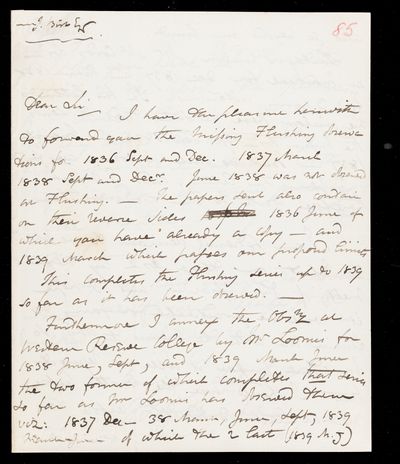 J. Birt Esq.
85
Dear Sir — I have the pleasure herewith
to forward you the missing Flushing Observa
tions for 1836 Sept and Dec. 1837 March
1838 Sept and Decr. June 1838 was not observed
at Flushing. — The papers sent also contain
on their reverse sides 1836 June of
which you have already a copy — and
1839 March which passes our proposed limits
This completes the Flushing series up to 1839
so far as it has been observed. —
Furthermore I annex the Obsns at
Western Reserve College by Mr Loomis for
1838 June, Sept, and 1839 March June
the two former of which completes that series
so far as Mr Loomis has observed them
viz: 1837 Dec — 38 March, June, Sept, 1839
March June — of which the 2 last (1839 M. J)